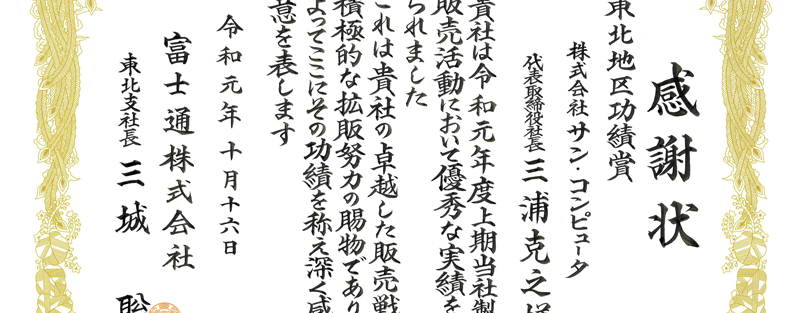 感謝状
東北地区功績賞
株式会社サン・コンピュータ
代表取締役社長 三浦克之
貴社は令和元年度上期当社製
販売活動において優秀な実績を
られました
これは貴社の卓越した販売戦
積極的な拡販努力の賜物であり
よってここにその功績を称え深く感
意を表します
令和元年十月十六日
富士通株式会社
東北支社長 三城